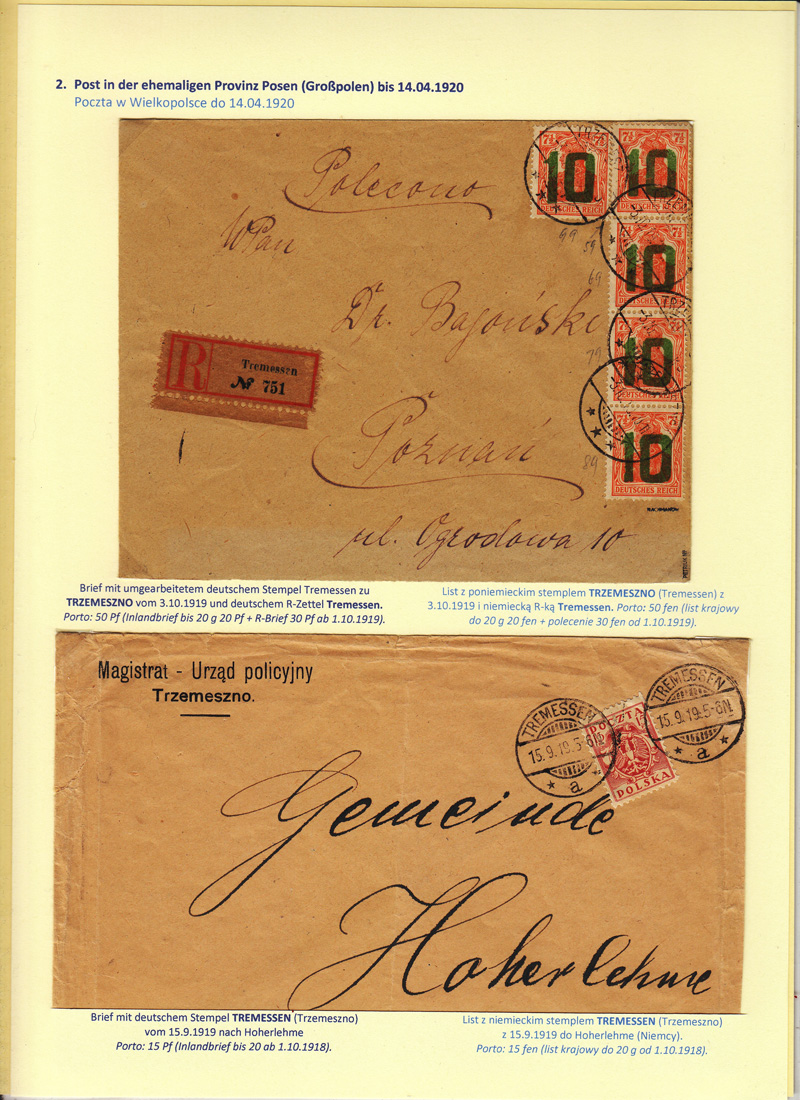 2. Post in der ehemaligen Provinz Posen (Großpolen) bis 14.04.1920
Poczta w Wielkopolsce do 14.04.1920
Polecono
WPan
Dr. Bagoński
Poznań
ul. Ogrodowa 10
R Tremessen
№ 751
7½ 7½
10 10
DEUTSCHES REICH
10
10
DEUTSCHES REICH
10
DEUTSCHES REICH
99
59
69
79
89
Brief mit umgearbeitetem deutschem Stempel Tremessen zu
TRZEMESZNO vom 3.10.1919 und deutschem R-Zettel Tremessen.
Porto: 50 Pf (Inlandbrief bis 20 g 20 Pf + R-Brief 30 Pf ab 1.10.1919).
List z poniemieckim stemplem TRZEMESZNO (Tremessen) z
3.10.1919 i niemiecką R-ką Tremessen. Porto: 50 fen (list krajowy
do 20 g 20 fen + polecenie 30 fen od 1.10.1919).
Magistrat - Urząd policyjny
Trzemeszno.
TREMESSEN
15.9.19.5-6N.
a
POCZTA
POLSKA
TREMESSEN
15.9.19.5-6N.
a
Gemeinde
Hoherlehme
Brief mit deutschem Stempel TREMESSEN (Trzemeszno)
vom 15.9.1919 nach Hoherlehme
Porto: 15 Pf (Inlandbrief bis 20 ab 1.10.1918).
List z niemieckim stemplem TREMESSEN (Trzemeszno)
z 15.9.1919 do Hoherlehme (Niemcy).
Porto: 15 fen (list krajowy do 20 g od 1.10.1918).